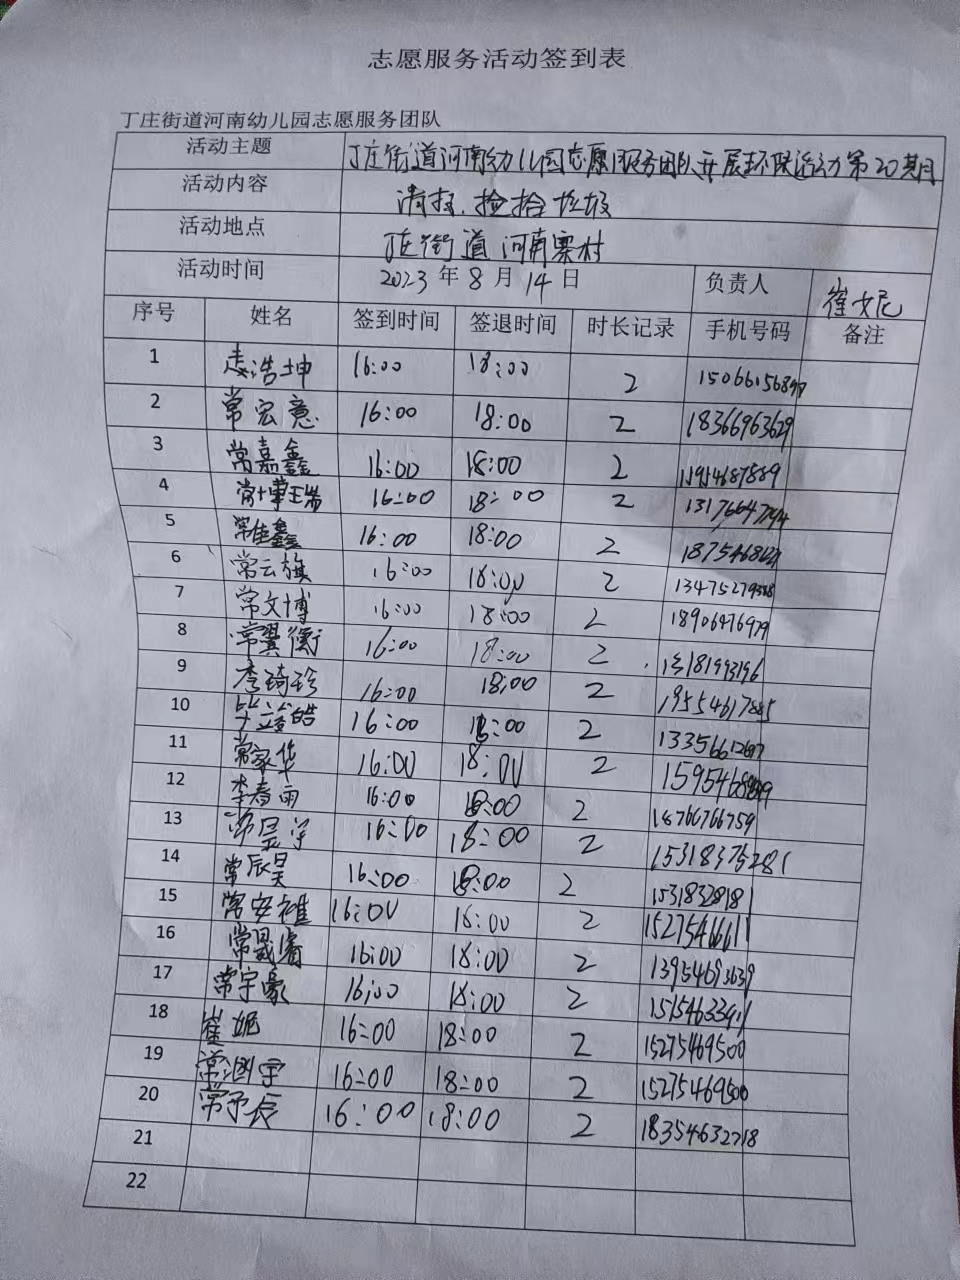 志愿服务活动签到表
丁庄街道河南幼儿园志愿服务团队
活动主题 丁庄街道河南幼儿园志愿服务团队开展环保活动第20期
活动内容 清扫、捡拾垃圾
活动地点 丁庄街道河南寨村
活动时间 2023年8月14日 负责人 崔文妮
序号 姓名 签到时间 签退时间 时长记录 手机号码 备注
1 浩坤 16:00 18:00 2
2 常宏意 16:00 18:00 2 18366963629
3 常嘉鑫 16:00 18:00 2
4 16:00 18:00 2
5 常佳鑫 16:00 18:00 2
6 常云旗 16:00 18:00 2
7 常文博 16:00 18:00 2 18906476979
8 常翼衡 16:00 18:00 2
9 李琦珍 16:00 18:00 2
10 16:00 18:00 2
11 常家华 16:00 18:00 2
12 李春雨 16:00 18:00 2 18766766759
13 常昊宇 16:00 18:00 2 15318375281
14 常辰昊 16:00 18:00 2 15318328181
15 常安雅 16:00 18:00 2 15275466611
16 常晟睿 16:00 18:00 2 13954693639
17 常宇豪 16:00 18:00 2
18 崔妮 16:00 18:00 2 15275469500
19 常洄宇 16:00 18:00 2 15275469500
20 常予辰 16:00 18:00 2 18354632718
21
22